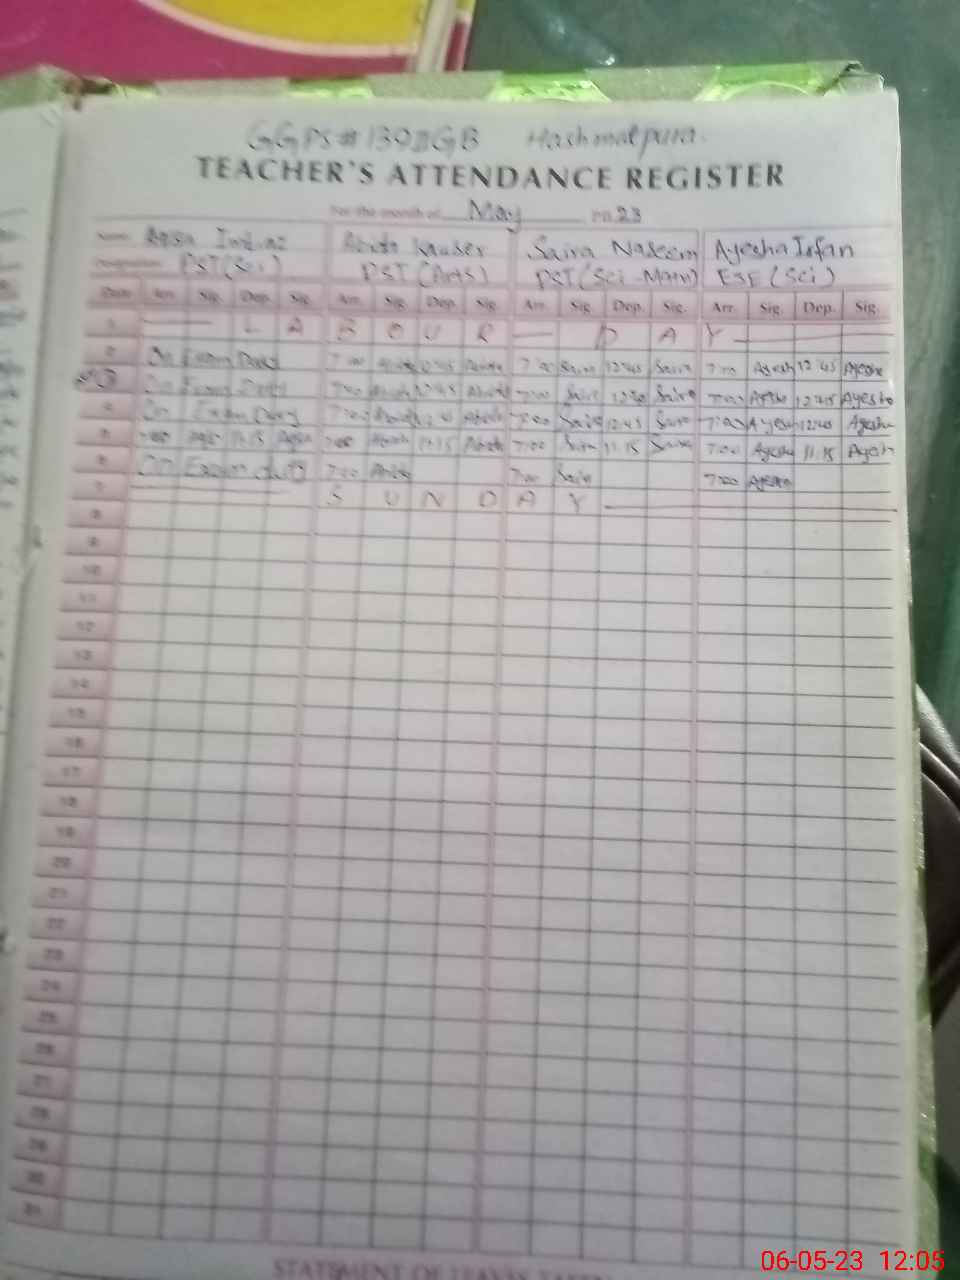 GGPS# 139 GB Hashmatpura.
TEACHER'S ATTENDANCE REGISTER
For the month of May 23
Name Aqsa Imtiaz Abida Kauser Saira Naseem Ayesha Irfan
Designation PST (Sci) PST (Arts) PST (Sci-Math) ESE (Sci)
Date Arr. Sig. Dep. Sig. Arr. Sig. Dep. Sig. Arr. Sig. Dep. Sig. Arr. Sig. Dep. Sig.
1 L A B O U R D A Y
2 On Exam Duty 7:00 Abida 12:45 Abida 7:00 Saira 12:45 Saira 7:00 Ayesha 12:45 Ayesha
3 On Exam Duty 7:00 Abida 12:45 Abida 7:00 Saira Saira 7:00 Ayesha 12:45 Ayesha
4 On Exam Duty 7:00 Abida 12:45 Abida 7:00 Saira 12:45 Saira 7:00 Ayesha 12:45 Ayesha
5 7:00 Aqsa 11:15 Aqsa 7:00 Abida 11:15 Abida 7:00 Saira 11:15 Saira 7:00 Ayesha 11:15 Ayesha
6 On Exam duty 7:00 Abida 7:00 Saira 7:00 Ayesha
7 S U N D A Y
8
9
10
11
12
13
14
15
16
17
18
19
20
21
22
23
24
25
26
27
28
29
30
31
STATEMENT OF LEAVES TAKEN
06-05-23 12:05